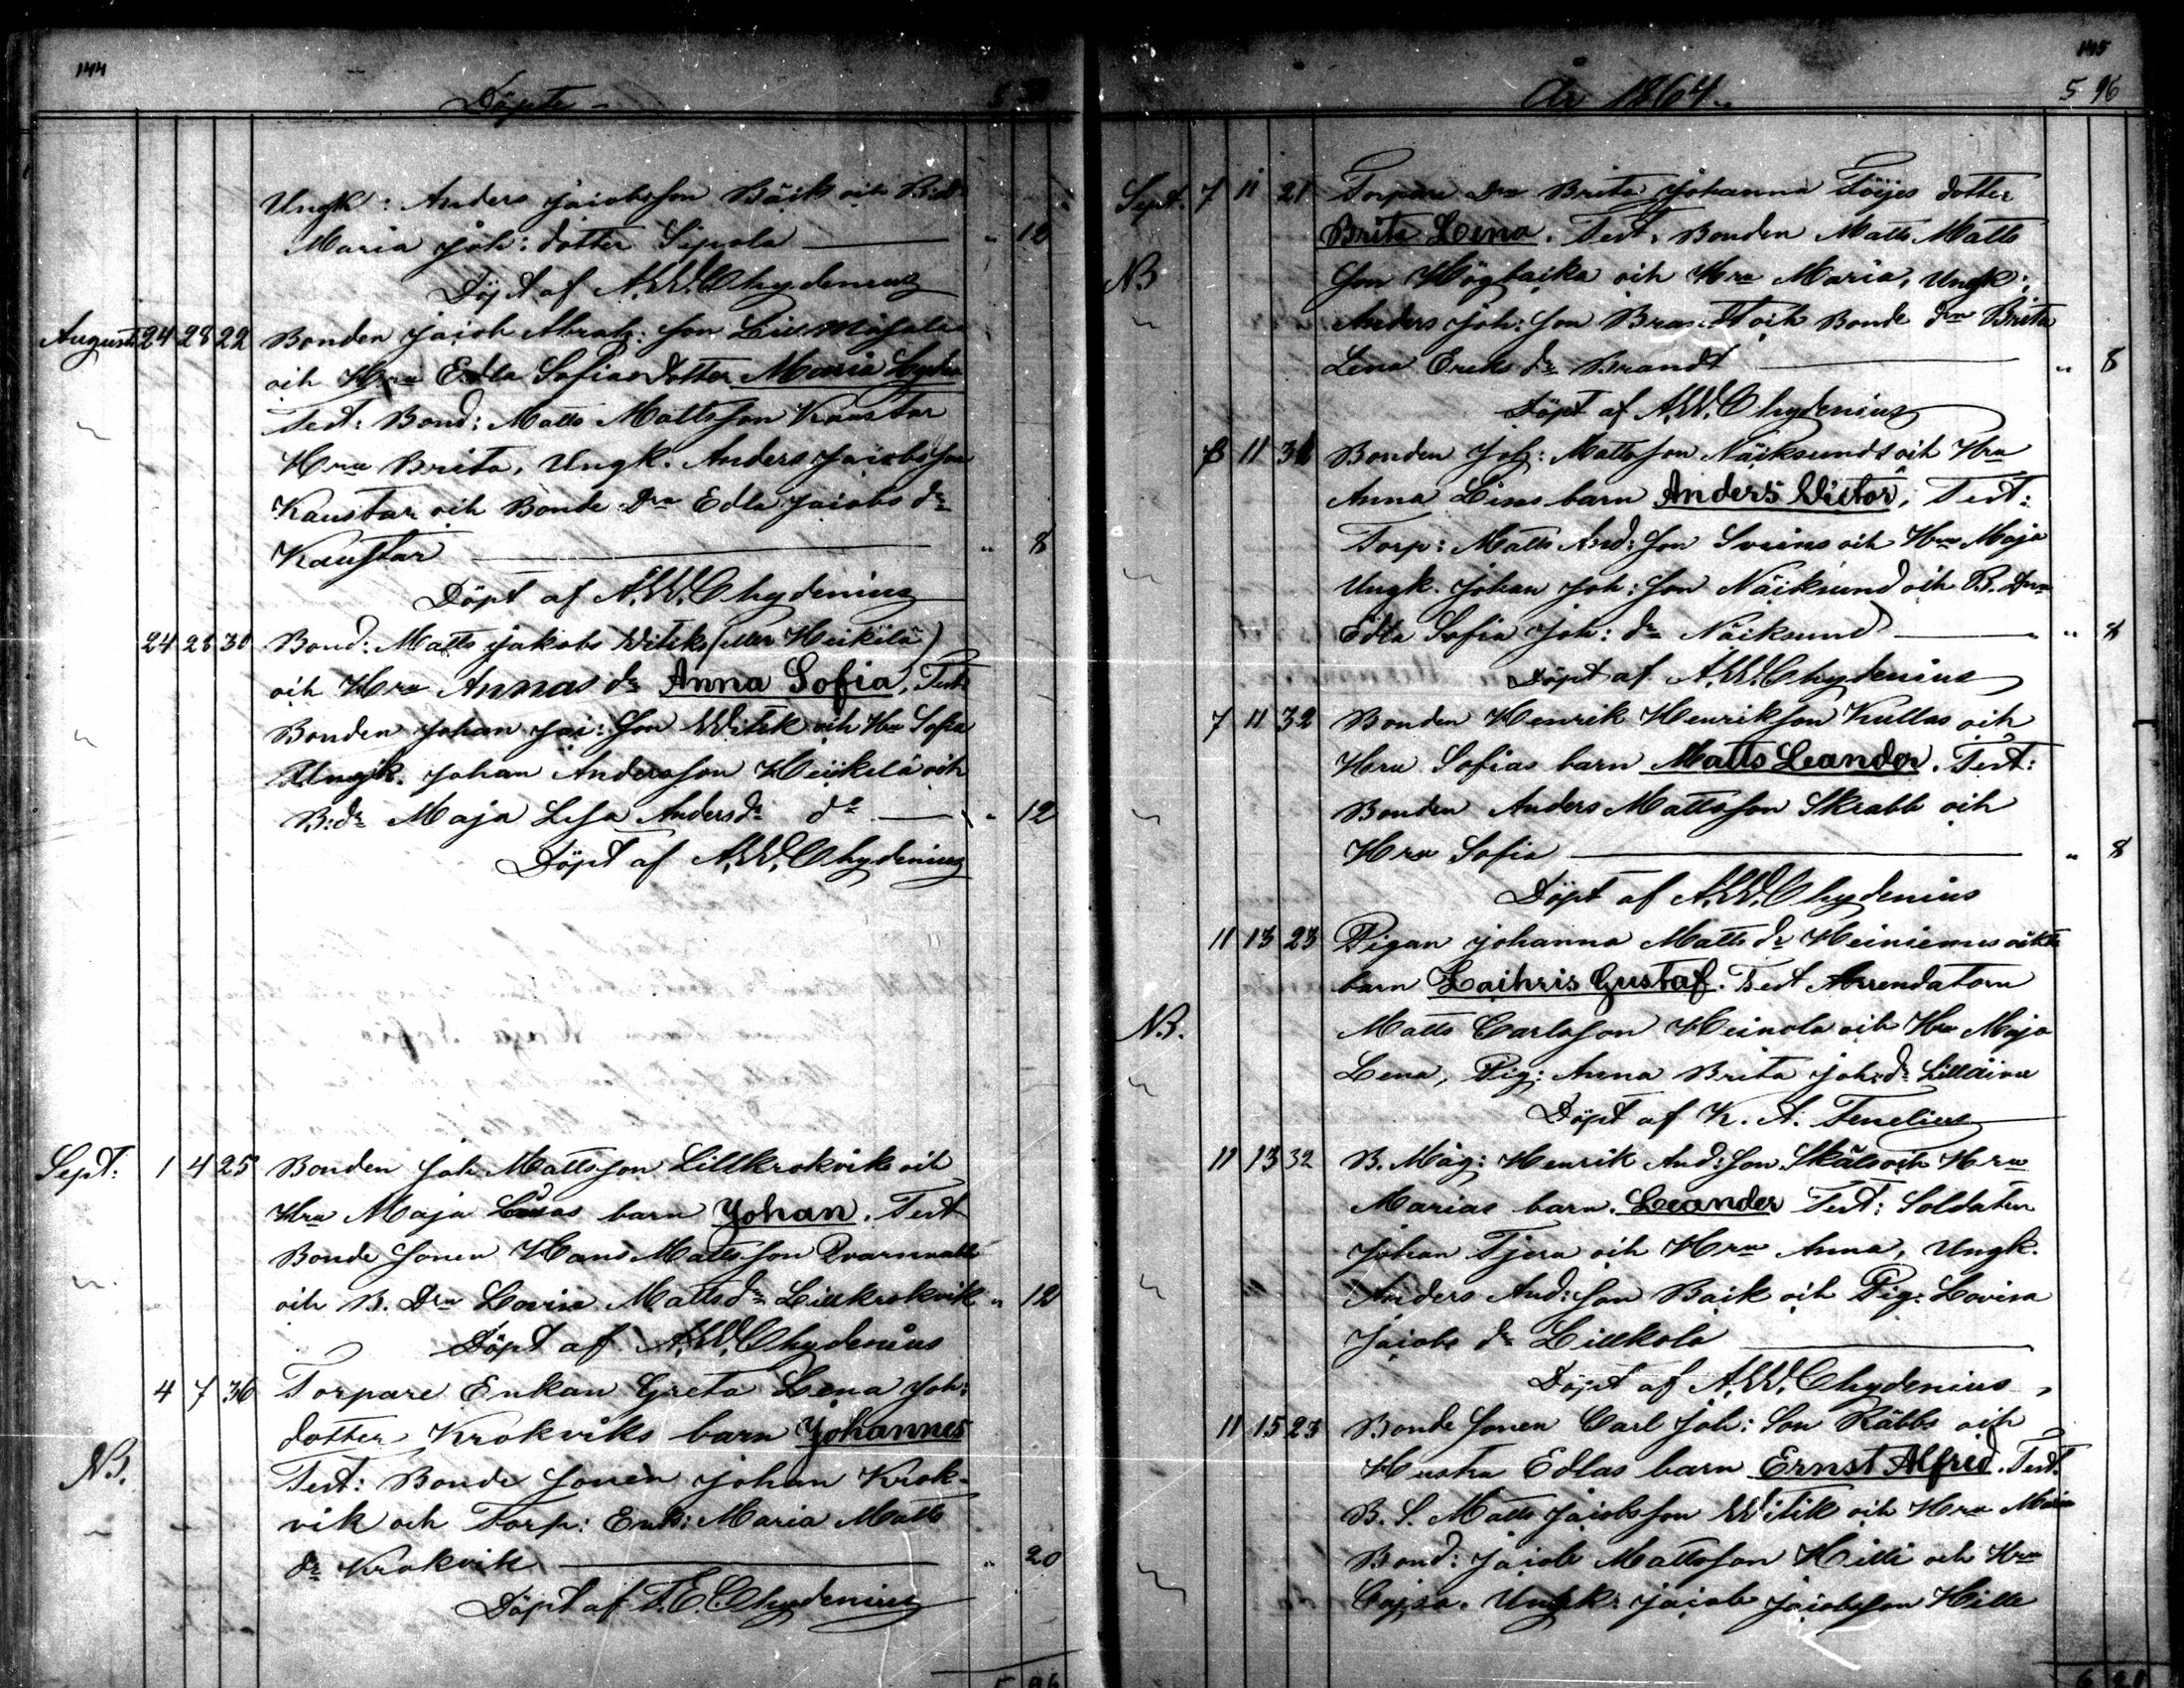 144
Döpte
Ungk: Anders Jacobsson Bäck och
Maria Joh: dotter Sipola " 12
Döpt af A.W. Chydenius
August 24 28 22 Bonden Jacob Abrah: Son
och Hru Edla Sofias dotter Maria
Test: Bond: Matts Mattsson Kaustar
Hru Brita, Ungk. Anders Jacobsson
Kaustar och Bonde Dra Edla Jacobs dr
Kaustar " 8
Döpt af A.W. Chydenius
24 28 30 Bond: Matts Jakobs Witiks (eller Heikilä)
och Hru Annas dr Anna Sofia, Test
Bonden Johan Jac: Son Witik och Hru Sofia
Ungk. Johan Andersson Heikilä och
B: dr Maja Lisa Anders dr do " 12
Döpt af A.W. Chydenius
Sept: 1 4 25 Bonden Joh Mattsson Lillkrokviks och
Hru Maja barn Johan. Test
Bonde Sonen Hans Mattsson
och B. Dra Lovisa Matts dr Lillkrokvik " 12
Döpt af A.W. Chydenius
4 7 36 Torpare Enkan Greta Lena Joh:
dotter Krokviks barn Johannes
NB. Test: Bonde Sonen Johan Krok-
vik och Torp: Enk: Maria Matts
dr Krokvik " 20
Döpt af F.E. Chydenius
5 96
145
År 1864.
5 96
Sept. 7 11 21 Torpare Dra Brita Johanna dotter
Brita Lena. Test. Bonden Matts Matts
NB Son och Hru Maria, Ungk:
Anders Joh: Son Brandt och Bonde dra Brita
Lena Ericks dr Brandt " 8
Döpt af A.W. Chydenius
11 Bonden Joh: Mattsson Näcksunds och Hru
Anna barn Anders Victor, Test:
Torp: Matts And: Son Sveins och Hru Maja
Ungk. Johan Joh: Son Näcksund och B. dra
Edla Sofia Joh: dr Näcksund " 8
Döpt af A.W. Chydenius
7 11 32 Bonden Henrik Henrikson Kullas och
Hru Sofias barn Matts Leander. Test:
Bonden Anders Mattsson Skrabb och
Hru Sofia " 8
Döpt af A.W. Chydenius
11 13 23 Pigan Johanna Matts dr
barn Gustaf. Test Arrendatorn
NB. Matts Carlsson Heinola och Hru Maja
Lena, Pig: Anna Brita Joh: dr
Döpt af K. A. Tenelius
11 13 32 B. Måg: Henrik And: Son och Hru
Marias barn. Leander Test: Soldaten
Johan Tjera och Hru Anna, Ungk.
Anders And: Son Bäck och Pig: Lovisa
Jacobs dr Lillkola
Döpt af A.W. Chydenius
11 15 23 Bonde Sonen Carl Joh: Son Räbbs och
Hustru Edlas barn Ernst Alfred. Test.
B. S. Matts Jacobsson Witik och Hru Maria
Bond: Jacob Mattsson Hilli och Hru
Cajsa. Ungk: Jacob Jacobsson Hilli
6